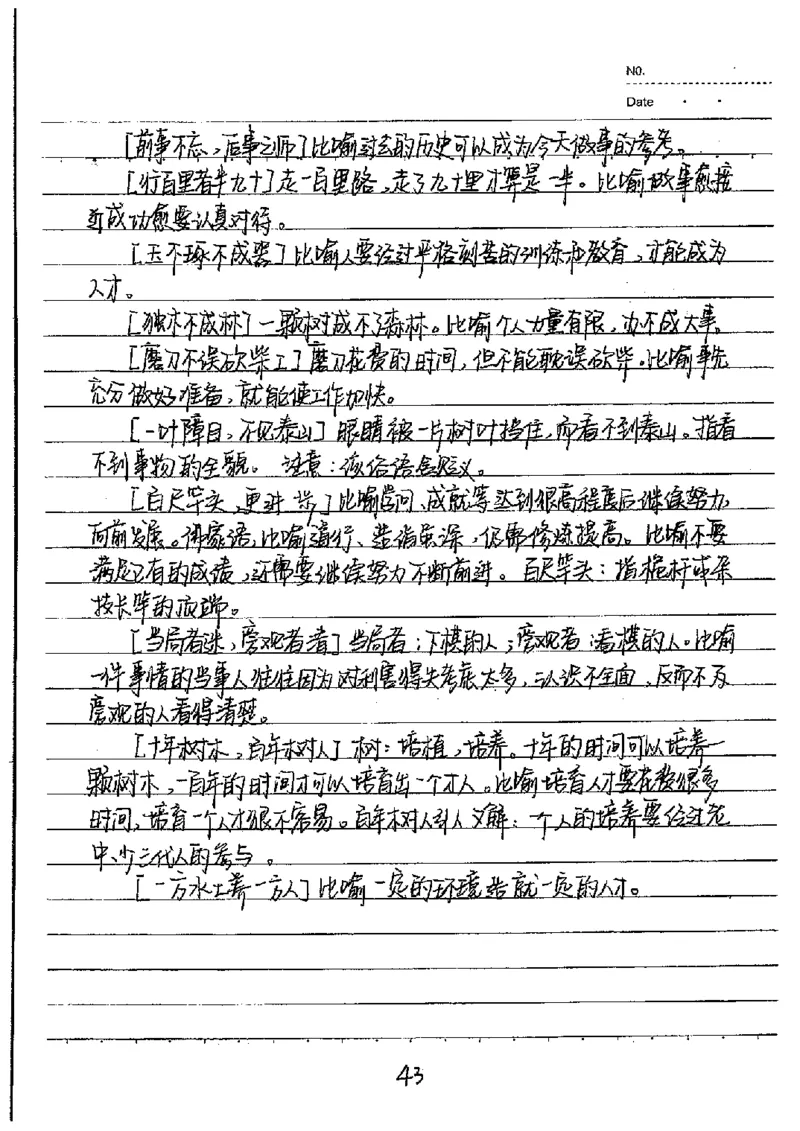 No.
Date
[前事不忘，后事之师]比喻过去的历史可以成为今天做事的参考。
[行百里者半九十]走一百里路，走了九十里才算是一半。比喻做事愈接
近成功愈要认真对待。
[玉不琢不成器]比喻人要经过严格刻苦的训练和教育，才能成为
人才。
[独木不成林]一颗树成不了森林。比喻个人力量有限，办不成大事。
[磨刀不误砍柴工]磨刀花费的时间，但不能耽误砍柴。比喻事先
充分做好准备，就能使工作加快。
[一叶障目，不见泰山]眼睛被一片树叶挡住，而看不到泰山。指看
不到事物的全貌。注意：该俗语含贬义。
[百尺竿头，更进一步]比喻学问、成就等达到很高程度后继续努力，
向前发展。佛家语，比喻道行、造诣虽深，仍需修炼提高。比喻不要
满足已有的成绩，还需要继续努力不断前进。百尺竿头：指桅杆或杂
技长竿的顶端。
[当局者迷，旁观者清]当局者：下棋的人；旁观者：看棋的人。比喻
一件事情的当事人往往因为对利害得失考虑太多，认识不全面，反而不及
旁观的人看得清楚。
[十年树木，百年树人]树：培植，培养。十年的时间可以培养一
颗树木，一百年的时间才可以培育出一个才人。比喻培育人才要花费很多
时间，培育一个人才很不容易。百年树人引人文解：一个人的培养要经过老
中、少三代人的参与。
[一方水土养一方人]比喻一定的环境造就一定的人才。
43